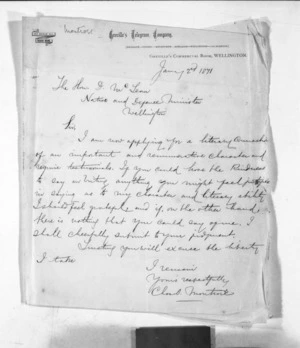 Greville's Telegram Company.
Greville's Commercial Room, Wellington,
Jany 3rd 1871
The Hon D. McLean
Native and Defence Minister
Wellington
Sir,
I am now applying for a literary
of an important and remunerative character and
require testimonials. If you could have the kindness
to say in writing anything you might feel
in saying as to my character and literary ability
I should feel grateful and if, on the other hand,
there is nothing that you could say again. I
shall cheerfully submit to your judgment.
Trusting you will excuse the liberty
I take
I remain
Yours respectfully